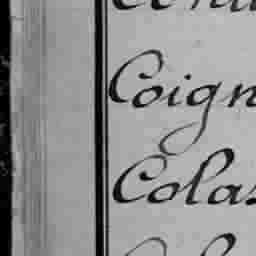 Coign
Colas